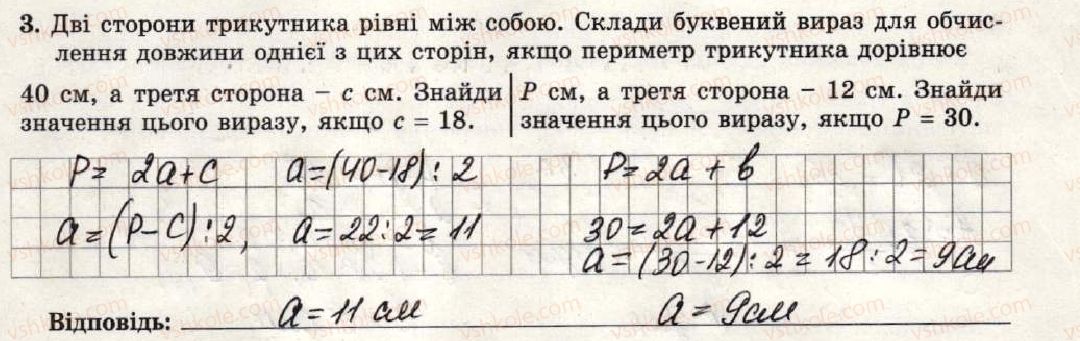 3. Дві сторони трикутника рівні між собою. Склади буквений вираз для обчис-
лення довжини однієї з цих сторін, якщо периметр трикутника дорівнює
40 см, а третя сторона – c см. Знайди
значення цього виразу, якщо c = 18.
P см, а третя сторона – 12 см. Знайди
значення цього виразу, якщо P = 30.
P = 2a+c a=(40-18):2
a=(P-c):2, a=22:2=11
P=2a+b
30=2a+12
a=(30-12):2=18:2=9см
Відповідь: a=11 см a=9см